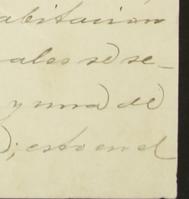 abitacion
ales se se-
y una de
); esto en el